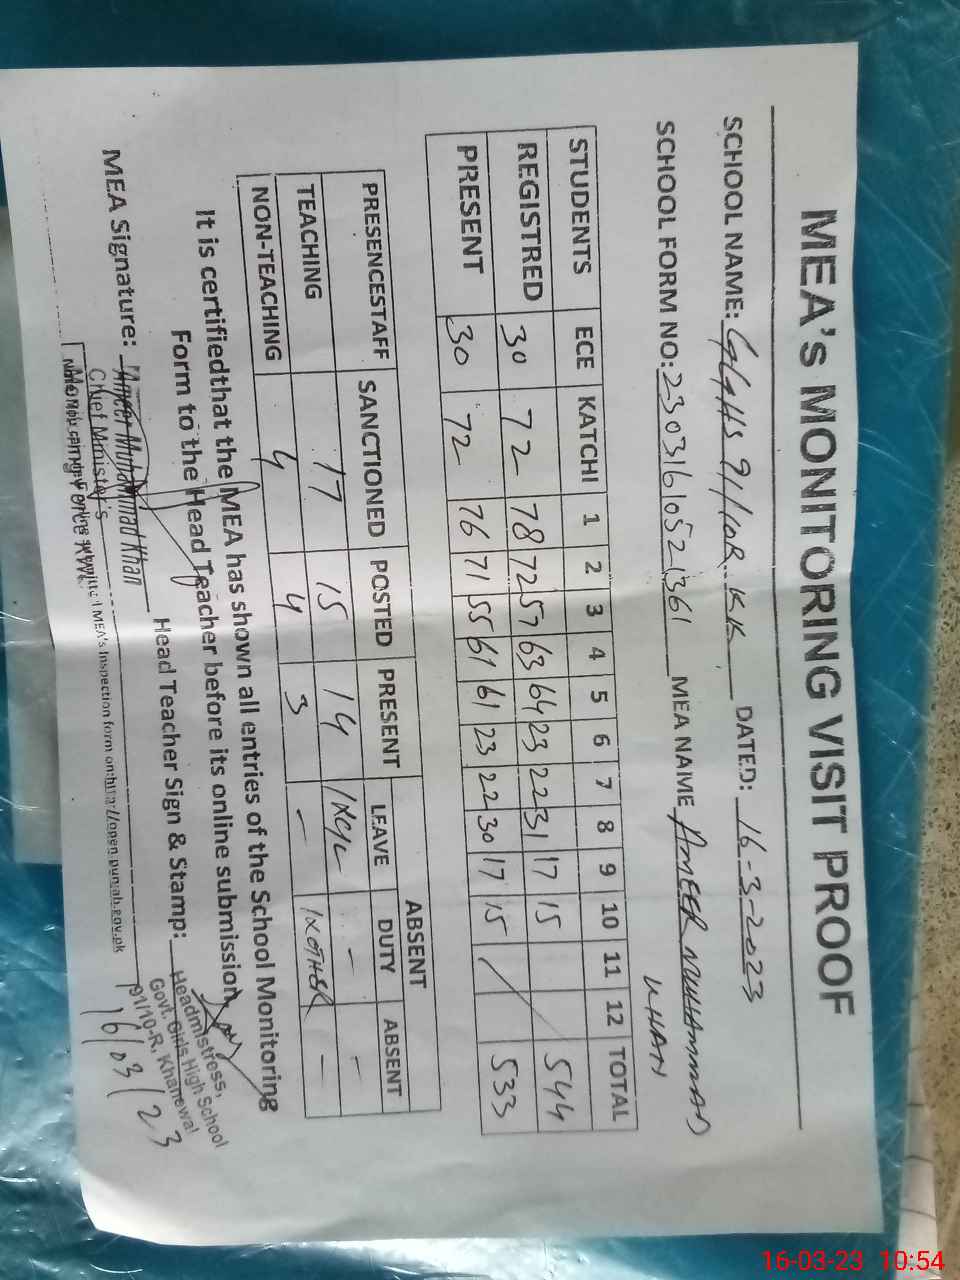 MEA's MONITORING VISIT PROOF
SCHOOL NAME: GGHS 91/10R KK DATED: 16-3-2023
SCHOOL FORM NO: 23031610521361 MEA NAME AMEER MUHAMMAD KHAN
STUDENTS ECE KATCHI 1 2 3 4 5 6 7 8 9 10 11 12 TOTAL
REGISTRED 30 72 78 72 57 63 64 23 22 31 17 15 544
PRESENT 30 72 76 71 55 61 61 23 22 30 17 15 / 533
PRESENCESTAFF SANCTIONED POSTED PRESENT ABSENT
LEAVE DUTY ABSENT
TEACHING 17 15 14 - -
NON-TEACHING 4 4 3 - 1xOTHER -
It is certifiedthat the MEA has shown all entries of the School Monitoring
Form to the Head Teacher before its online submission.
MEA Signature: Ameer Muhammad Khan Head Teacher Sign & Stamp:
Chief Minister's
Headmistress,
Govt. Girls High School
91/10-R, Khanewal
MEA's Inspection form on:http://open.punjab.gov.pk
16/03/23
16-03-23 10:54